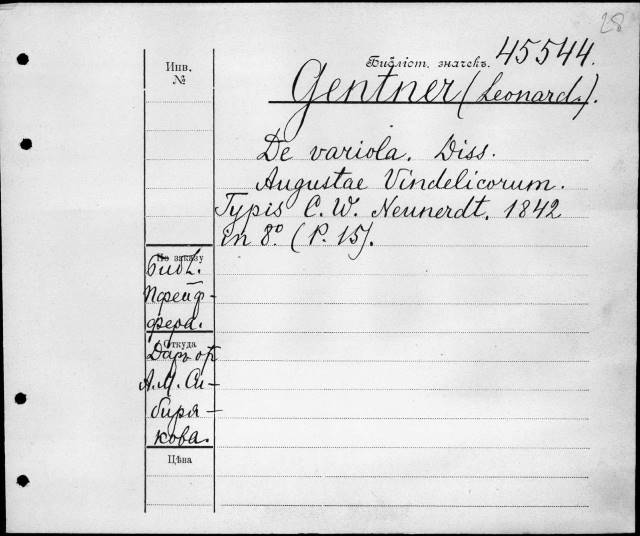 28
Библіот. значекъ. 45544.
Инв.
№
Gentner (Leonard.).
De variola. Diss.
Augustae Vindelicorum.
Typis C. W. Neunerdt. 1842
in 8° (P. 15).
По заказу
Библ.
Пфейф-
фера.
Откуда
Даръ от
А. М. Си-
биря-
кова.
Цѣна